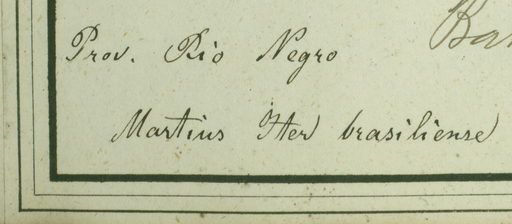 Prov. Rio Negro
Martius Iter brasiliense